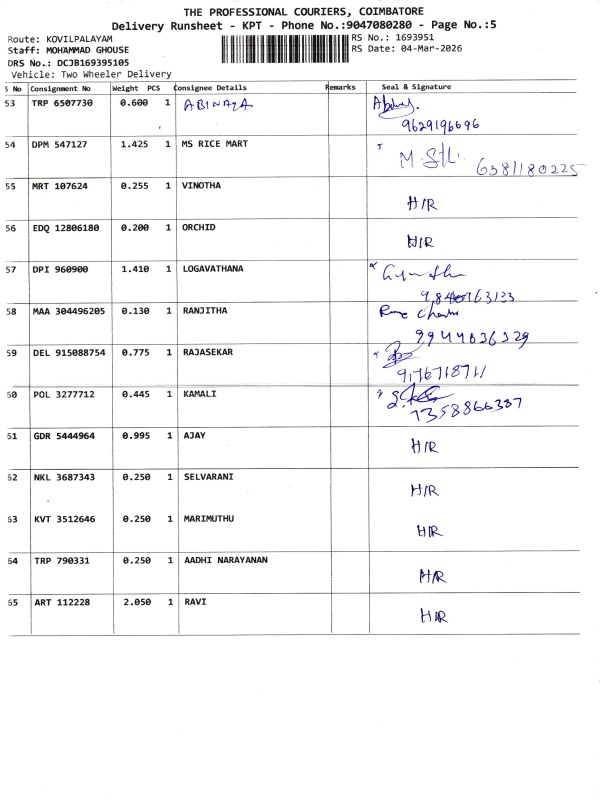 THE PROFESSIONAL COURIERS, COIMBATORE
Delivery Runsheet - KPT - Phone No.:9047080280 - Page No.:5
Route: KOVILPALAYAM RS No.: 1693951
Staff: MOHAMMAD GHOUSE RS Date: 04-Mar-2026
DRS No.: DCJB169395105
Vehicle: Two Wheeler Delivery
S No Consignment No Weight PCS Consignee Details Remarks Seal & Signature
53 TRP 6507730 0.600 1 ABINAYA
9629196696
54 DPM 547127 1.425 1 MS RICE MART 6381180225
55 MRT 107624 0.255 1 VINOTHA H/R
56 EDQ 12806180 0.200 1 ORCHID H/R
57 DPI 960900 1.410 1 LOGAVATHANA
9840763133
58 MAA 304496205 0.130 1 RANJITHA
9944036329
59 DEL 915088754 0.775 1 RAJASEKAR
9176718711
60 POL 3277712 0.445 1 KAMALI
7358866387
61 GDR 5444964 0.995 1 AJAY H/R
62 NKL 3687343 0.250 1 SELVARANI H/R
63 KVT 3512646 0.250 1 MARIMUTHU H/R
64 TRP 790331 0.250 1 AADHI NARAYANAN H/R
65 ART 112228 2.050 1 RAVI H/R